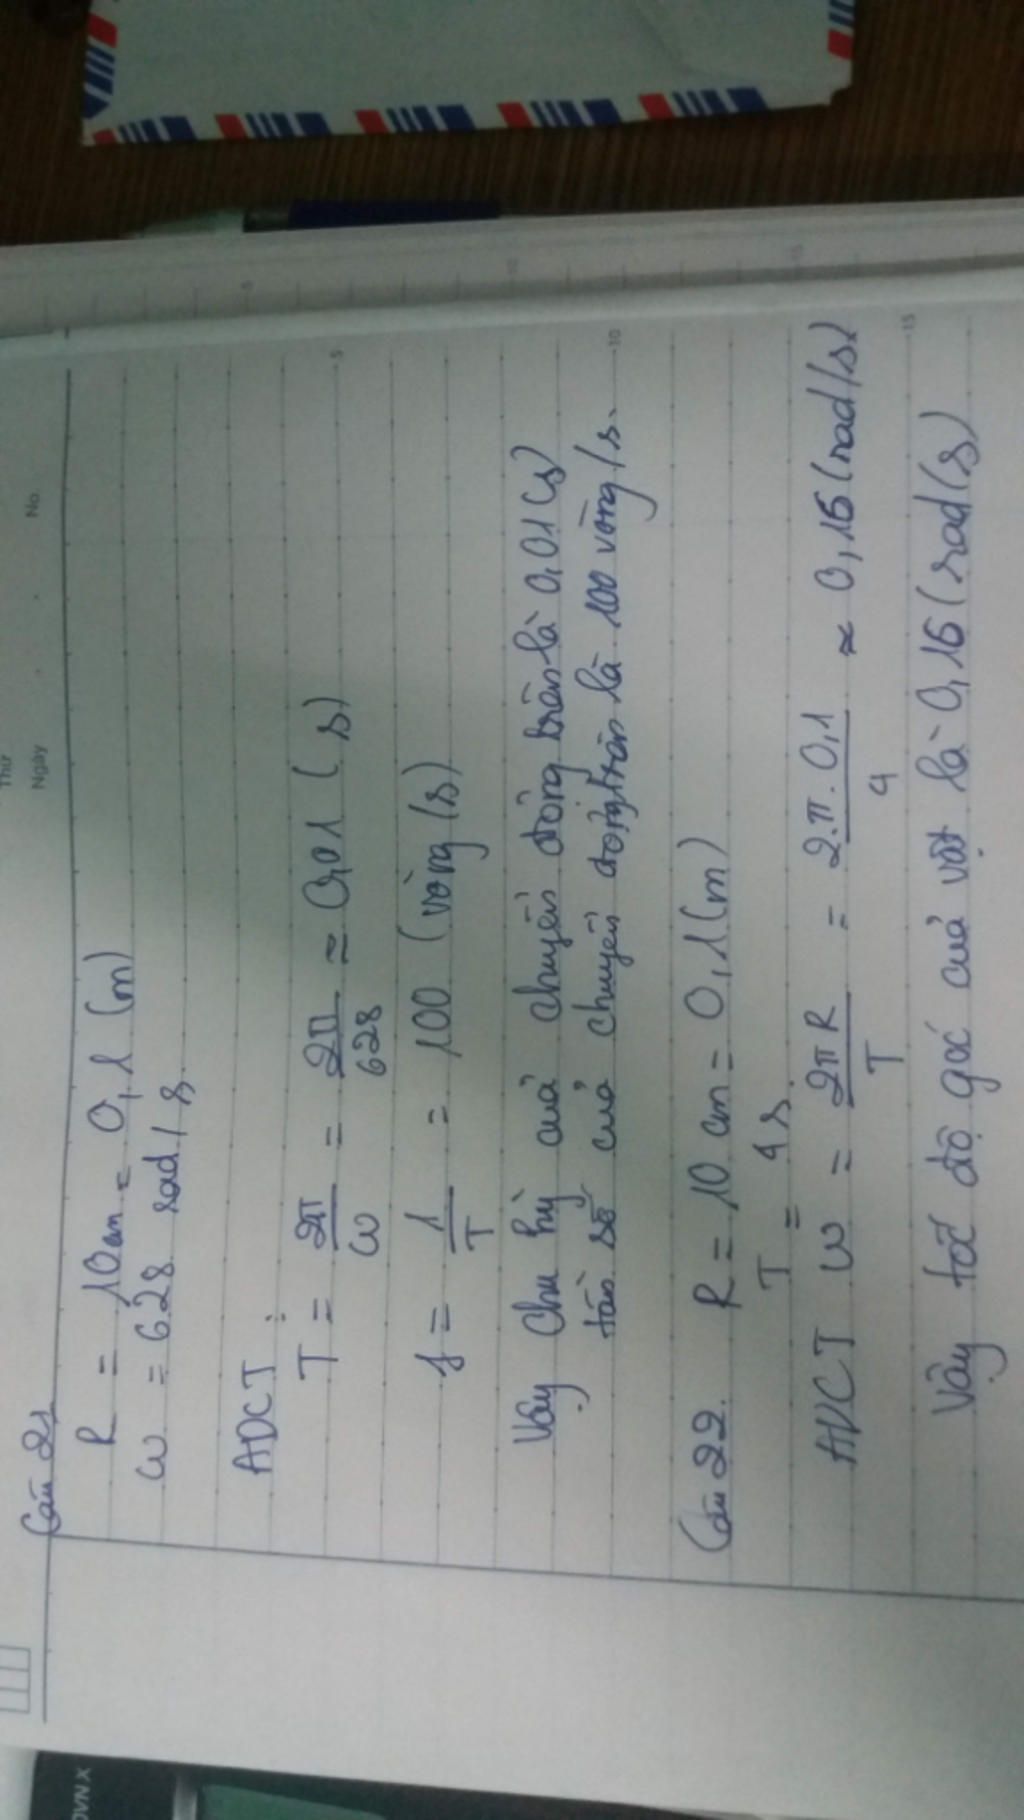 Thứ
Ngày
No.
Câu 21
R = 10cm = 0,1 (m)
ω = 628 rad/s
ADCT :
T = 2π/ω = 2π/628 ≈ 0,01 (s)
f = 1/T = 100 (vòng/s)
Vậy chu kỳ của chuyển động tròn là 0,01 (s)
tần số của chuyển động tròn là 100 vòng/s.
Câu 22. R = 10 cm = 0,1 (m)
T = 4s.
ADCT ω = 2πR/T = 2.π.0,1/4 ≈ 0,16 (rad/s)
Vậy tốc độ góc của vật là 0,16 (rad/s)
5
10
15
5
10
15
OVN X